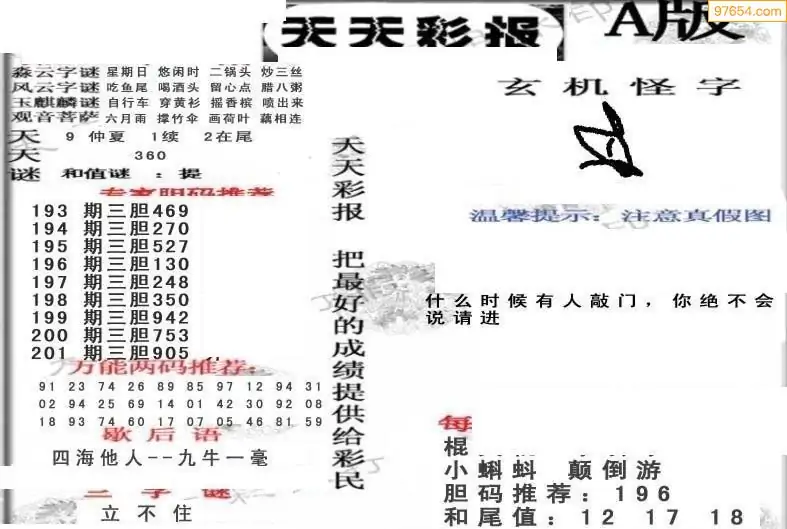 97654.com
天天彩报
A版
淼云字谜 星期日 悠闲时 二锅头 炒三丝
风云字谜 吃鱼尾 喝酒头 留心点 腊八粥
玉麒麟谜 自行车 穿黄衫 摇香槟 喷出来
观音菩萨 六月雨 撑竹伞 画荷叶 藕相连
天 9 仲夏 1续 2在尾
天 360
谜 和值谜 :提
专家胆码推荐
193 期三胆469
194 期三胆270
195 期三胆527
196 期三胆130
197 期三胆248
198 期三胆350
199 期三胆942
200 期三胆753
201 期三胆905
万能两码推荐:
91 23 74 26 89 85 97 12 94 31
02 94 25 69 14 01 42 30 92 08
18 93 74 60 17 07 05 46 81 59
歇后语
四海他人--九牛一毫
三字谜
立不住
天天彩报 把最好的成绩提供给彩民
玄机怪字
温馨提示: 注意真假图
什么时候有人敲门，你绝不会
说请进
每
棍
小蝌蚪 颠倒游
胆码推荐：196
和尾值：12 17 18